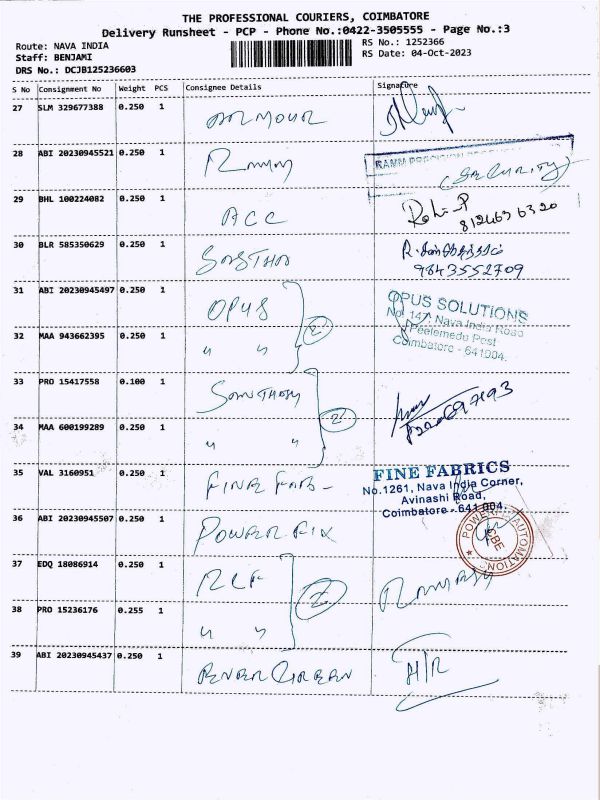 THE PROFESSIONAL COURIERS, COIMBATORE
Delivery Runsheet - PCP - Phone No.:0422-3505555 - Page No.:3
Route: NAVA INDIA
RS No.: 1252366
Staff: BENJAMI
RS Date: 04-Oct-2023
DRS No.: DCJB125236603
S No Consignment No Weight PCS Consignee Details Signature
27 SLM 329677388 0.250 1 ARMOUR
28 ABI 20230945521 0.250 1
(SECURITY)
29 BHL 100224082 0.250 1 ACC
8124636320
30 BLR 585350629 0.250 1
9843552709
31 ABI 20230945497 0.250 1 OPUS
OPUS SOLUTIONS
No. 147, Nava India Road
Peelemedu Post
Coimbatore - 641004.
32 MAA 943662395 0.250 1 " "
2
33 PRO 15417558 0.100 1
2
34 MAA 600199289 0.250 1 " "
35 VAL 3160951 0.250 1 FINE FAB-
FINE FABRICS
No.1261, Nava India Corner,
Avinashi Road,
Coimbatore - 641 004.
36 ABI 20230945507 0.250 1 POWER FIX
POWER AUTOMATIONS
CBE
37 EDQ 18086914 0.250 1
2
38 PRO 15236176 0.255 1 " "
39 ABI 20230945437 0.250 1 EVERGREEN